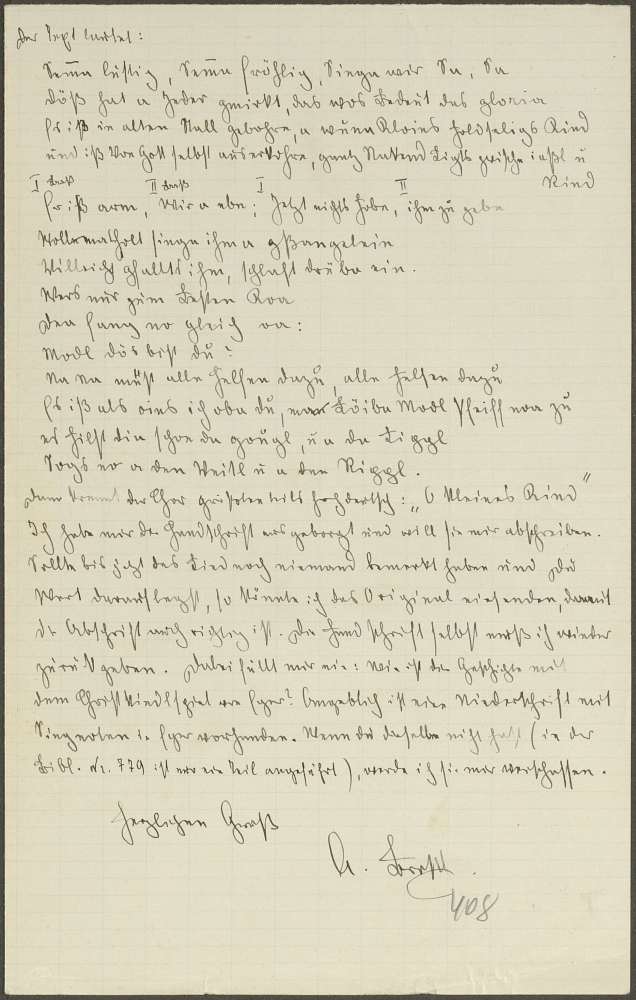 Der Text lautet:
Semma lustig, Semma fröhlig, Singa wir Sa, Sa
Döß hat a Jeder gmirkt, das wos Bedeut das gloria
Es iß in alten Stall gebohre, a wuna Kloins holdseligs Kind
und iß von Gott selbst auserkohre, gantz Nakend Ligts zwische ießl u
Kind
I Baß II Baß I II
Er iß arm, Wir a ebn; Jetzt nichts habe, ihm zu gebe
Wollermathalt singa ihm a gsangelein
Villeicht gfallts ihm, schlaft drüba ein.
Wers nur zum Besten Koa
Den fang no gleich oa:
Modl dös bist du?
Na Na müßt alle helfen dazu, alle helfen dazu
Es iß als oins ich oda du, Löiba Modl Pfeiff noa zu
er hilft dia schon da göugl, u a da Lippl
Togs no a den Veitl u a den Rippl.
Dann kommt der Chor größtenteils hochdeutsch: „O kleines Kind"
Ich habe mir die Handschrift ausgeborgt und will sie mir abschreiben.
Sollte bis jetzt das Lied noch niemand bemerkt haben und Du
Wert darauflegst, so könnte ich das Original einsenden, damit
die Abschrift auch richtig ist. Die Handschrift selbst muß ich wieder
zurückgeben. Dabei fällt mir ein: Wie ist die Geschichte mit
dem Christkindlspiel von Eger? Angeblich ist eine Niederschrift mit
Singnoten in Eger vorhanden. Wenn du dieselbe nicht hast (in der
Bibl. Nr. 779 ist nur ein Teil angeführt), werde ich sie mir verschaffen.
Herzlichen Gruß
A.
408